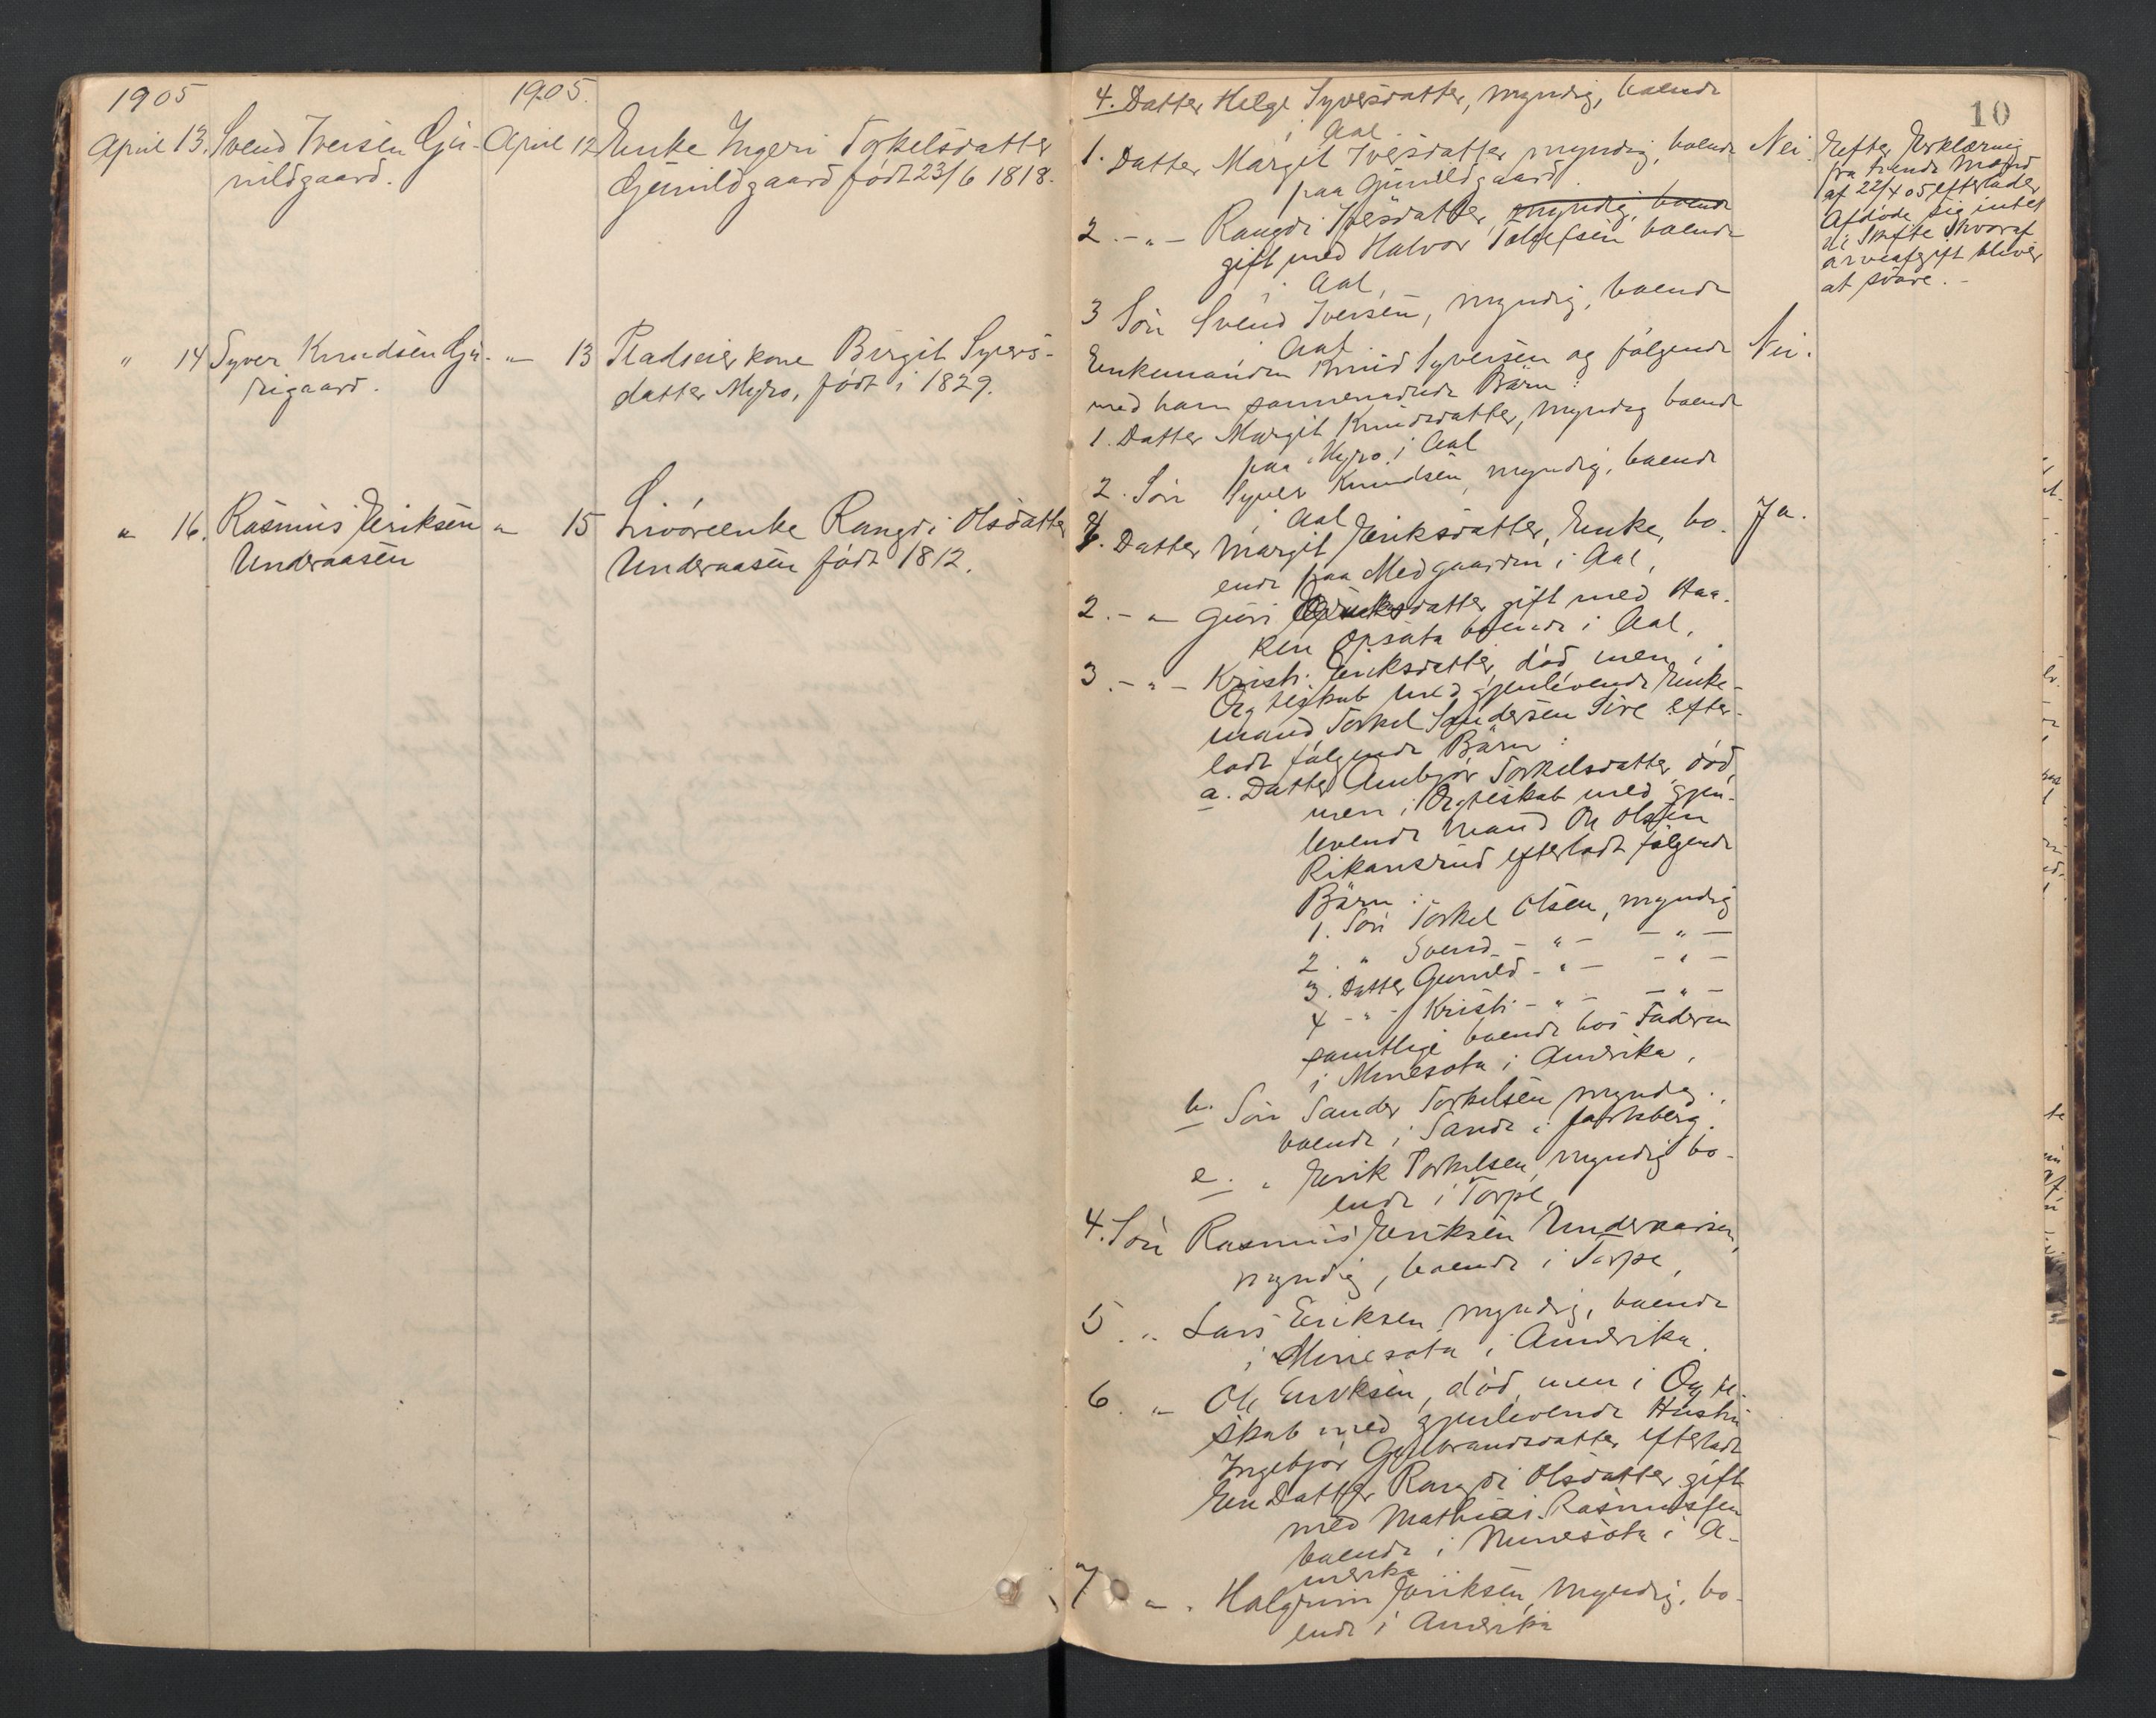 1905
1905.
April 13. Svend Iversen Gu-
nildgaard.
April 12 Enke Ingeri Torkelsdatter
Gunildgaard født 23/6 1818.
" 14 Syver Knudsen Gu-
rigaard.
" 13 Pladseierkone Birgit Syvers-
datter Myro, født i 1829.
" 16. Rasmus Eriksen
Underaasen
" 15 Livøreenke Rangdi Olsdatter
Underaasen født 1812.
10
4. Datter Helge Syversdatter, myndig, boende
i Aal.
1. Datter Margit Iversdatter myndig, boende
paa Gunildgaard.
2. - " - Rangdi Iversdatter, myndig, boende
gift med Halvor Tolefsen boende
i Aal,
3 Søn Svend Iversen, myndig, boende
i Aal.
Nei.
Efter Erklæring
fra tvende Mænd
af 22/4 05 efterlader
Afdøde sig intet
til Skifte hvoraf
arveafgift bliver
at svare. -
Enkemanden Knud Syversen og følgende
med ham sammenavlede Børn:
1. Datter Margit Knudsdatter, myndig boende
paa Myro i Aal
2. Søn Syver Knudsen, myndig, boende
i Aal
Nei.
1. Datter Margit Eriksdatter, Enke, bo-
ende paa Medgaarden i Aal,
2. - " Guri Eriksdatter gift med Haa-
ken Opsata boende i Aal,
3. - " - Kristi Eriksdatter, død men i
Ægteskab med gjenlevende Enke-
mand Torkel Sandersen Sire efter-
ladt følgende Børn:
a. Datter Ambjør Torkelsdatter, død,
men i Ægteskab med gjen-
levende Mand Ole Olsen
Rikansrud efterladt følgende
Børn:
1. Søn Torkel Olsen, myndig
2. " Svend - " - - " -
3. Datter Gunild - " - - " -
4 - " - Kristi - " - - " -
samtlige boende hos Faderen
i Minesota i Amerika,
b. Søn Sander Torkelsen myndig.,
boende i Sande i Jarlsberg.
c. " Erik Torkelsen, myndig bo-
ende i Torpe,
4. Søn Rasmus Eriksen Underaasen,
myndig, boende i Torpe,
5. " Lars Eriksen myndig, boende
i Minesota i Amerika.
6. " Ole Eriksen, død, men i Ægte-
skab med gjenlevende Hustru
Ingebjør Gulbrandsdatter efterladt
En Datter Rangdi Olsdatter gift
med Mathias Rasmussen
boende i Minesota i A-
merika
7 " . Halgrim Eriksen, myndig, bo-
ende i Amerika
Ja.